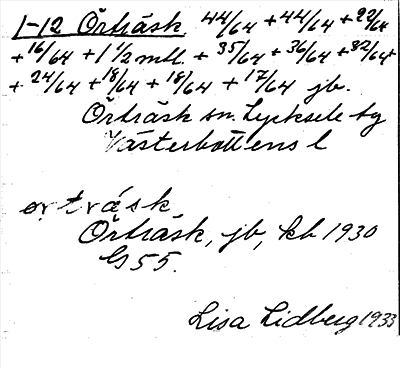 1-12 Örträsk 44/64 + 44/64 + 22/64
+ 16/64 + 1 1/2 mtl. + 35/64 + 36/64 + 32/64 +
+ 24/64 + 18/64 + 18/64 + 17/64 jb.
Örträsk sn. Lycksele tg
Västerbottens l
ør̥tràsk
Örträsk, jb, kb 1930
G 55.
Lisa Lidberg 1933